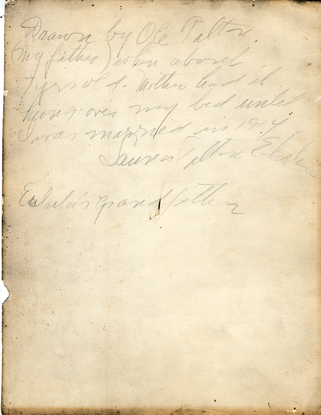 Drawn by Ole Tilton
(My father) when about
7 yrs old. Mother had it
hung over my bed until
I was married in 1914
Laura Tilton
Eulala's grandfather